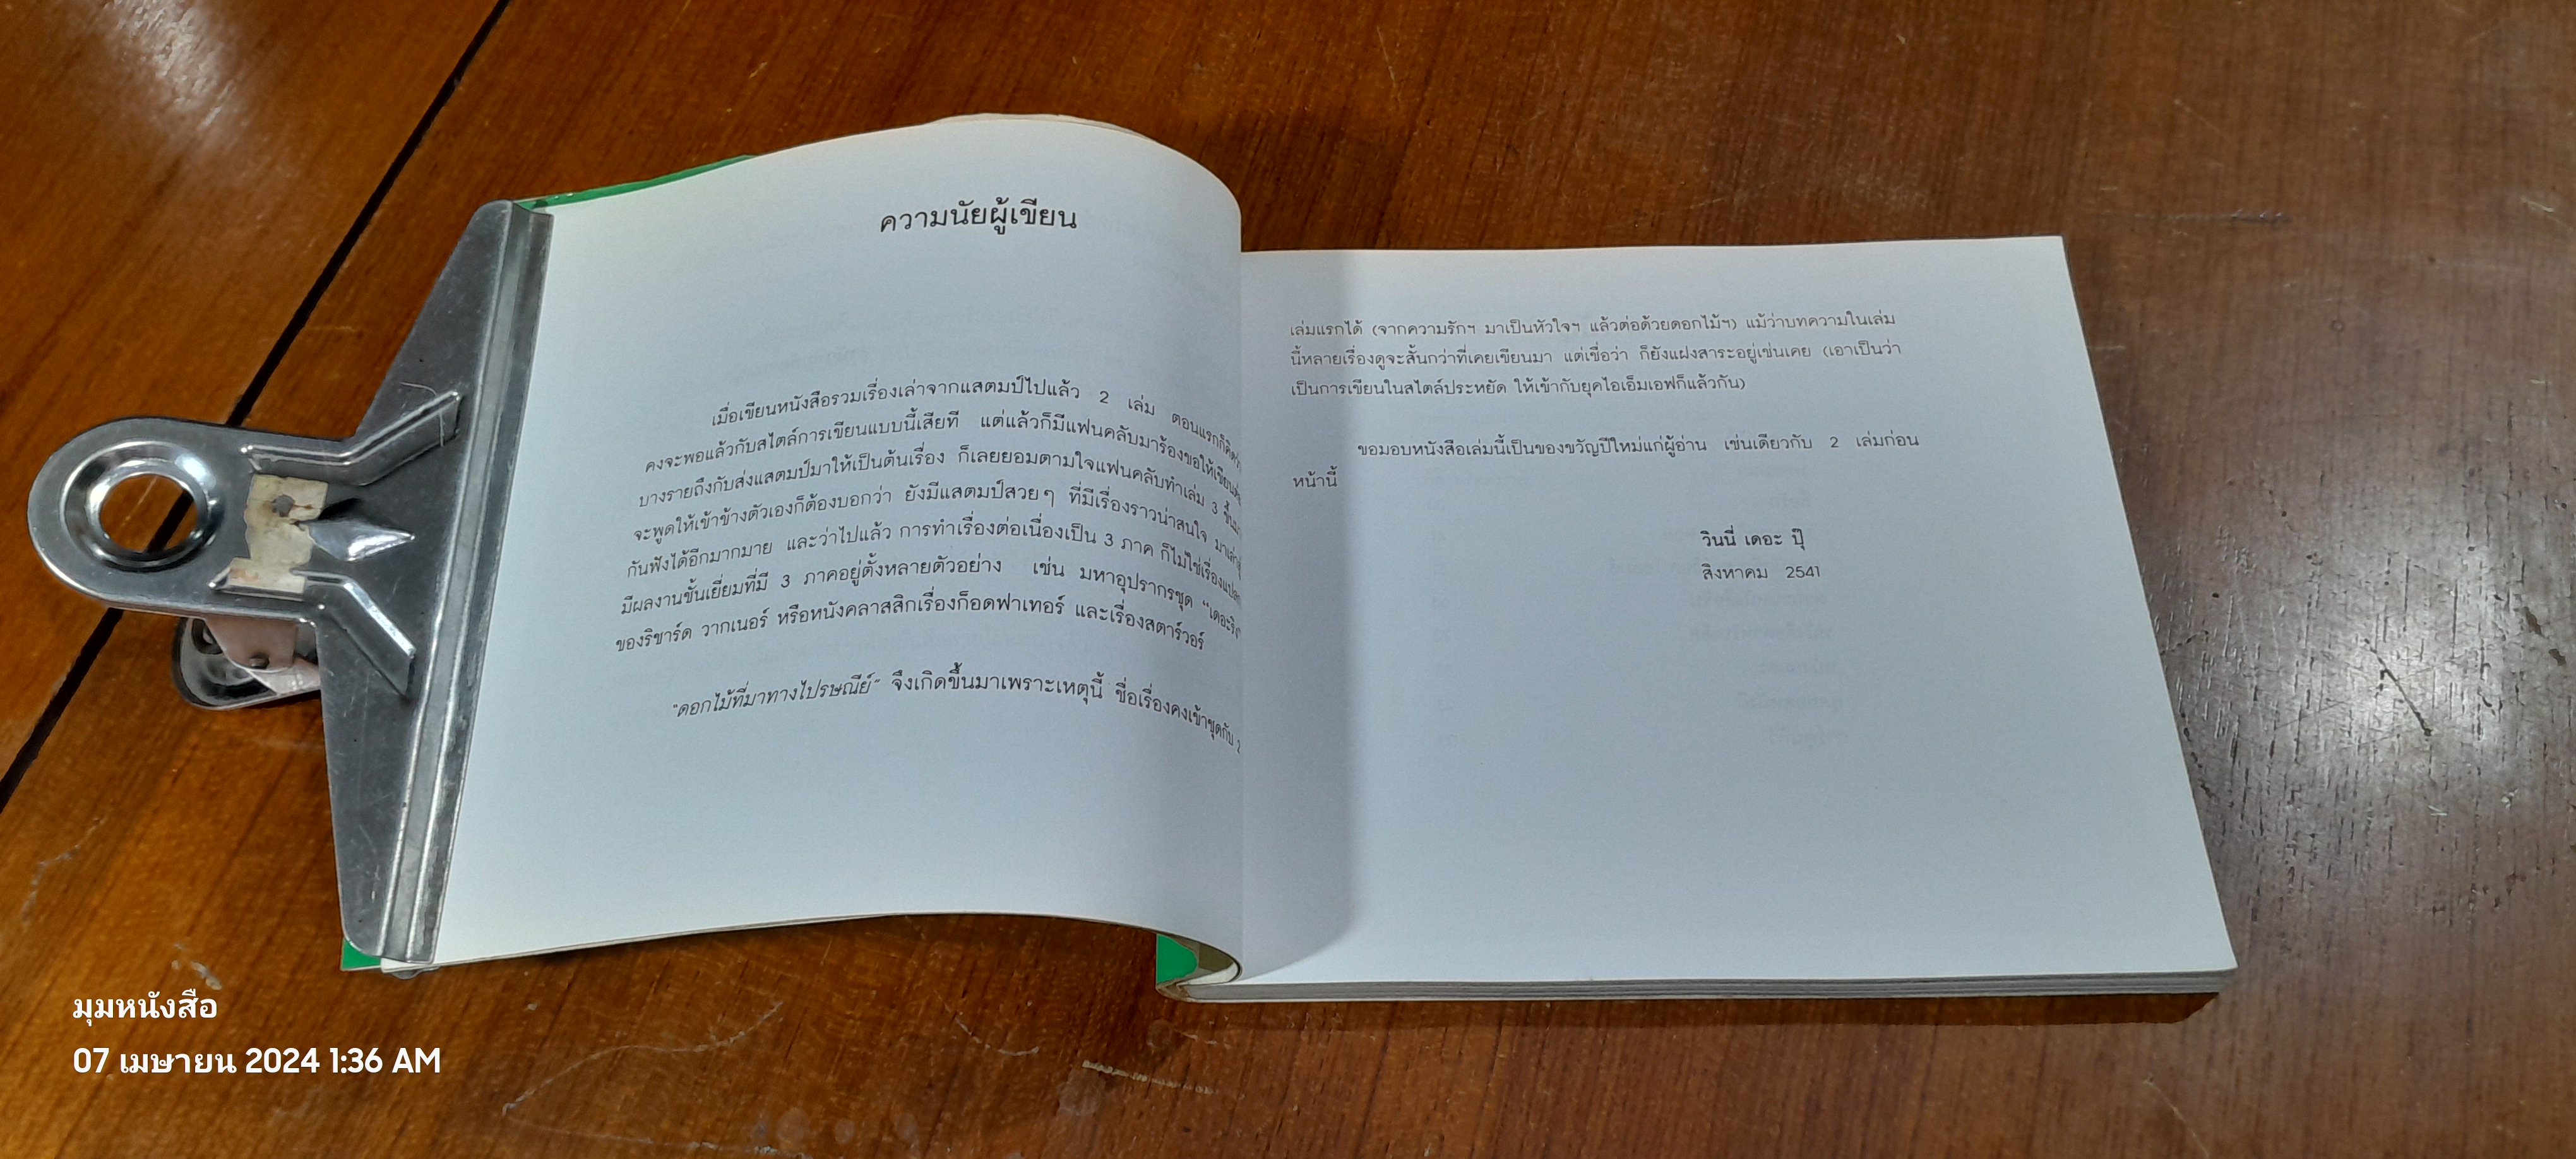 ความนัยผู้เขียน
เมื่อเขียนหนังสือรวมเรื่องเล่าจากแสตมป์ไปแล้ว 2 เล่ม ตอนแรกก็คิดว่า
คงจะพอแล้วกับสไตล์การเขียนแบบนี้เสียที แต่แล้วก็มีแฟนคลับมาร้องขอให้เขียน
บางรายถึงกับส่งแสตมป์มาให้เป็นต้นเรื่อง ก็เลยยอมตามใจแฟนคลับทำเล่ม 3 ขึ้นมา
จะพูดให้เข้าข้างตัวเองก็ต้องบอกว่า ยังมีแสตมป์สวยๆ ที่มีเรื่องราวน่าสนใจ
กันฟังได้อีกมากมาย และว่าไปแล้ว การทำเรื่องต่อเนื่องเป็น 3 ภาค ก็ไม่ใช่เรื่อง
มีผลงานชั้นเยี่ยมที่มี 3 ภาคอยู่ตั้งหลายตัวอย่าง เช่น มหาอุปรากรชุด "เดอะริง"
ของริชาร์ด วากเนอร์ หรือหนังคลาสสิกเรื่องก็อดฟาเทอร์ และเรื่องสตาร์วอร์
"ดอกไม้ที่มาทางไปรษณีย์" จึงเกิดขึ้นมาเพราะเหตุนี้ ชื่อเรื่องคงเข้าชุดกับ 2
เล่มแรกได้ (จากความรักฯ มาเป็นหัวใจฯ แล้วต่อด้วยดอกไม้ฯ) แม้ว่าบทความในเล่ม
นี้หลายเรื่องดูจะสั้นกว่าที่เคยเขียนมา แต่เชื่อว่า ก็ยังแฝงสาระอยู่เช่นเคย (เอาเป็นว่า
เป็นการเขียนในสไตล์ประหยัด ให้เข้ากับยุคไอเอ็มเอฟก็แล้วกัน)
ขอมอบหนังสือเล่มนี้เป็นของขวัญปีใหม่แก่ผู้อ่าน เช่นเดียวกับ 2 เล่มก่อน
หน้านี้
วินนี่ เดอะ ปุ๊
สิงหาคม 2541
มุมหนังสือ
07 เมษายน 2024 1:36 AM